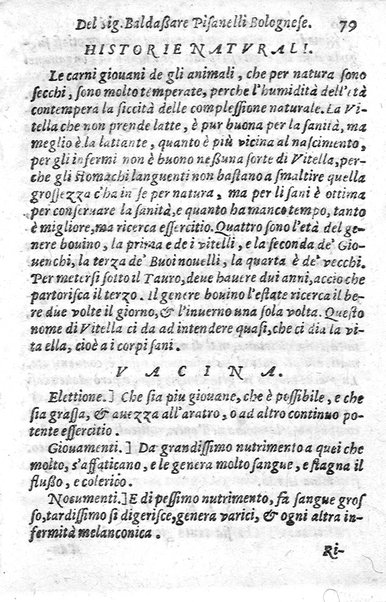 Del sig. Baldaßare Pisanelli Bolognese. 79
HISTORIE NATVRALI.
Le carni giouani de gli animali, che per natura sono
secchi, sono molto temperate, perche l'humidità dell'età
contempera la siccità delle complessione naturale. La Vi-
tella che non prende latte, è pur buona per la sanità, ma
meglio è la lattante, quanto è più vicina al nascimento,
per gli infermi non è buono neßuna sorte di Vitella, per-
che gli stomachi languenti non bastano a smaltire quella
grossezza c'ha in se per natura, ma per li sani è ottima
per conseruare la sanità, e quanto ha manco tempo, tanto
è migliore, ma ricerca essercitio. Quattro sono l'età del ge-
nere bouino, la prima e de i vitelli, e la seconda de' Gio-
uenchi, la terza de' Buoi nouelli, la quarta è de' vecchi.
Per metersi sotto il Tauro, deue hauere dui anni, accio che
partorisca il terzo. Il genere bouino l'estate ricerca il be-
re due volte il giorno, & l'inuerno una sola volta. Questo
nome di Vitella ci da ad intendere quasi, che ci dia la vi-
ta ella, cioè a i corpi sani.
VACINA.
Elettione.] Che sia piu giouane, che è possibile, e che
sia grassa, & auezza all'aratro, o ad altro continuo po-
tente essercitio.
Giouamenti.] Da grandissimo nutrimento a quei che
molto, s'affaticano, e le genera molto sangue, e stagna il
flußo, e colerico.
Nocumenti.] E di pessimo nutrimento, fa sangue gros
so, tardissimo si digerisce, genera varici, & ogni altra in-
fermità melanconica.
Ri-